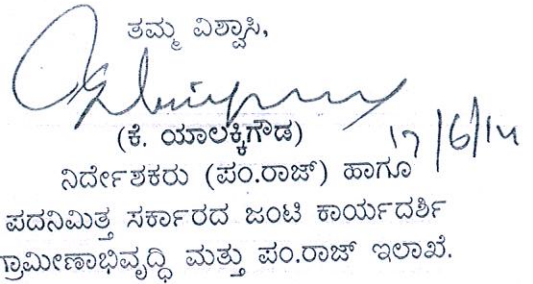 ತಮ್ಮ ವಿಶ್ವಾಸಿ,
(ಕೆ. ಯಾಲಕ್ಕಿಗೌಡ) 17/6/14
ನಿರ್ದೇಶಕರು (ಪಂ.ರಾಜ್) ಹಾಗೂ
ಪದನಿಮಿತ್ತ ಸರ್ಕಾರದ ಜಂಟಿ ಕಾರ್ಯದರ್ಶಿ
ಗ್ರಾಮೀಣಾಭಿವೃದ್ಧಿ ಮತ್ತು ಪಂ.ರಾಜ್ ಇಲಾಖೆ.